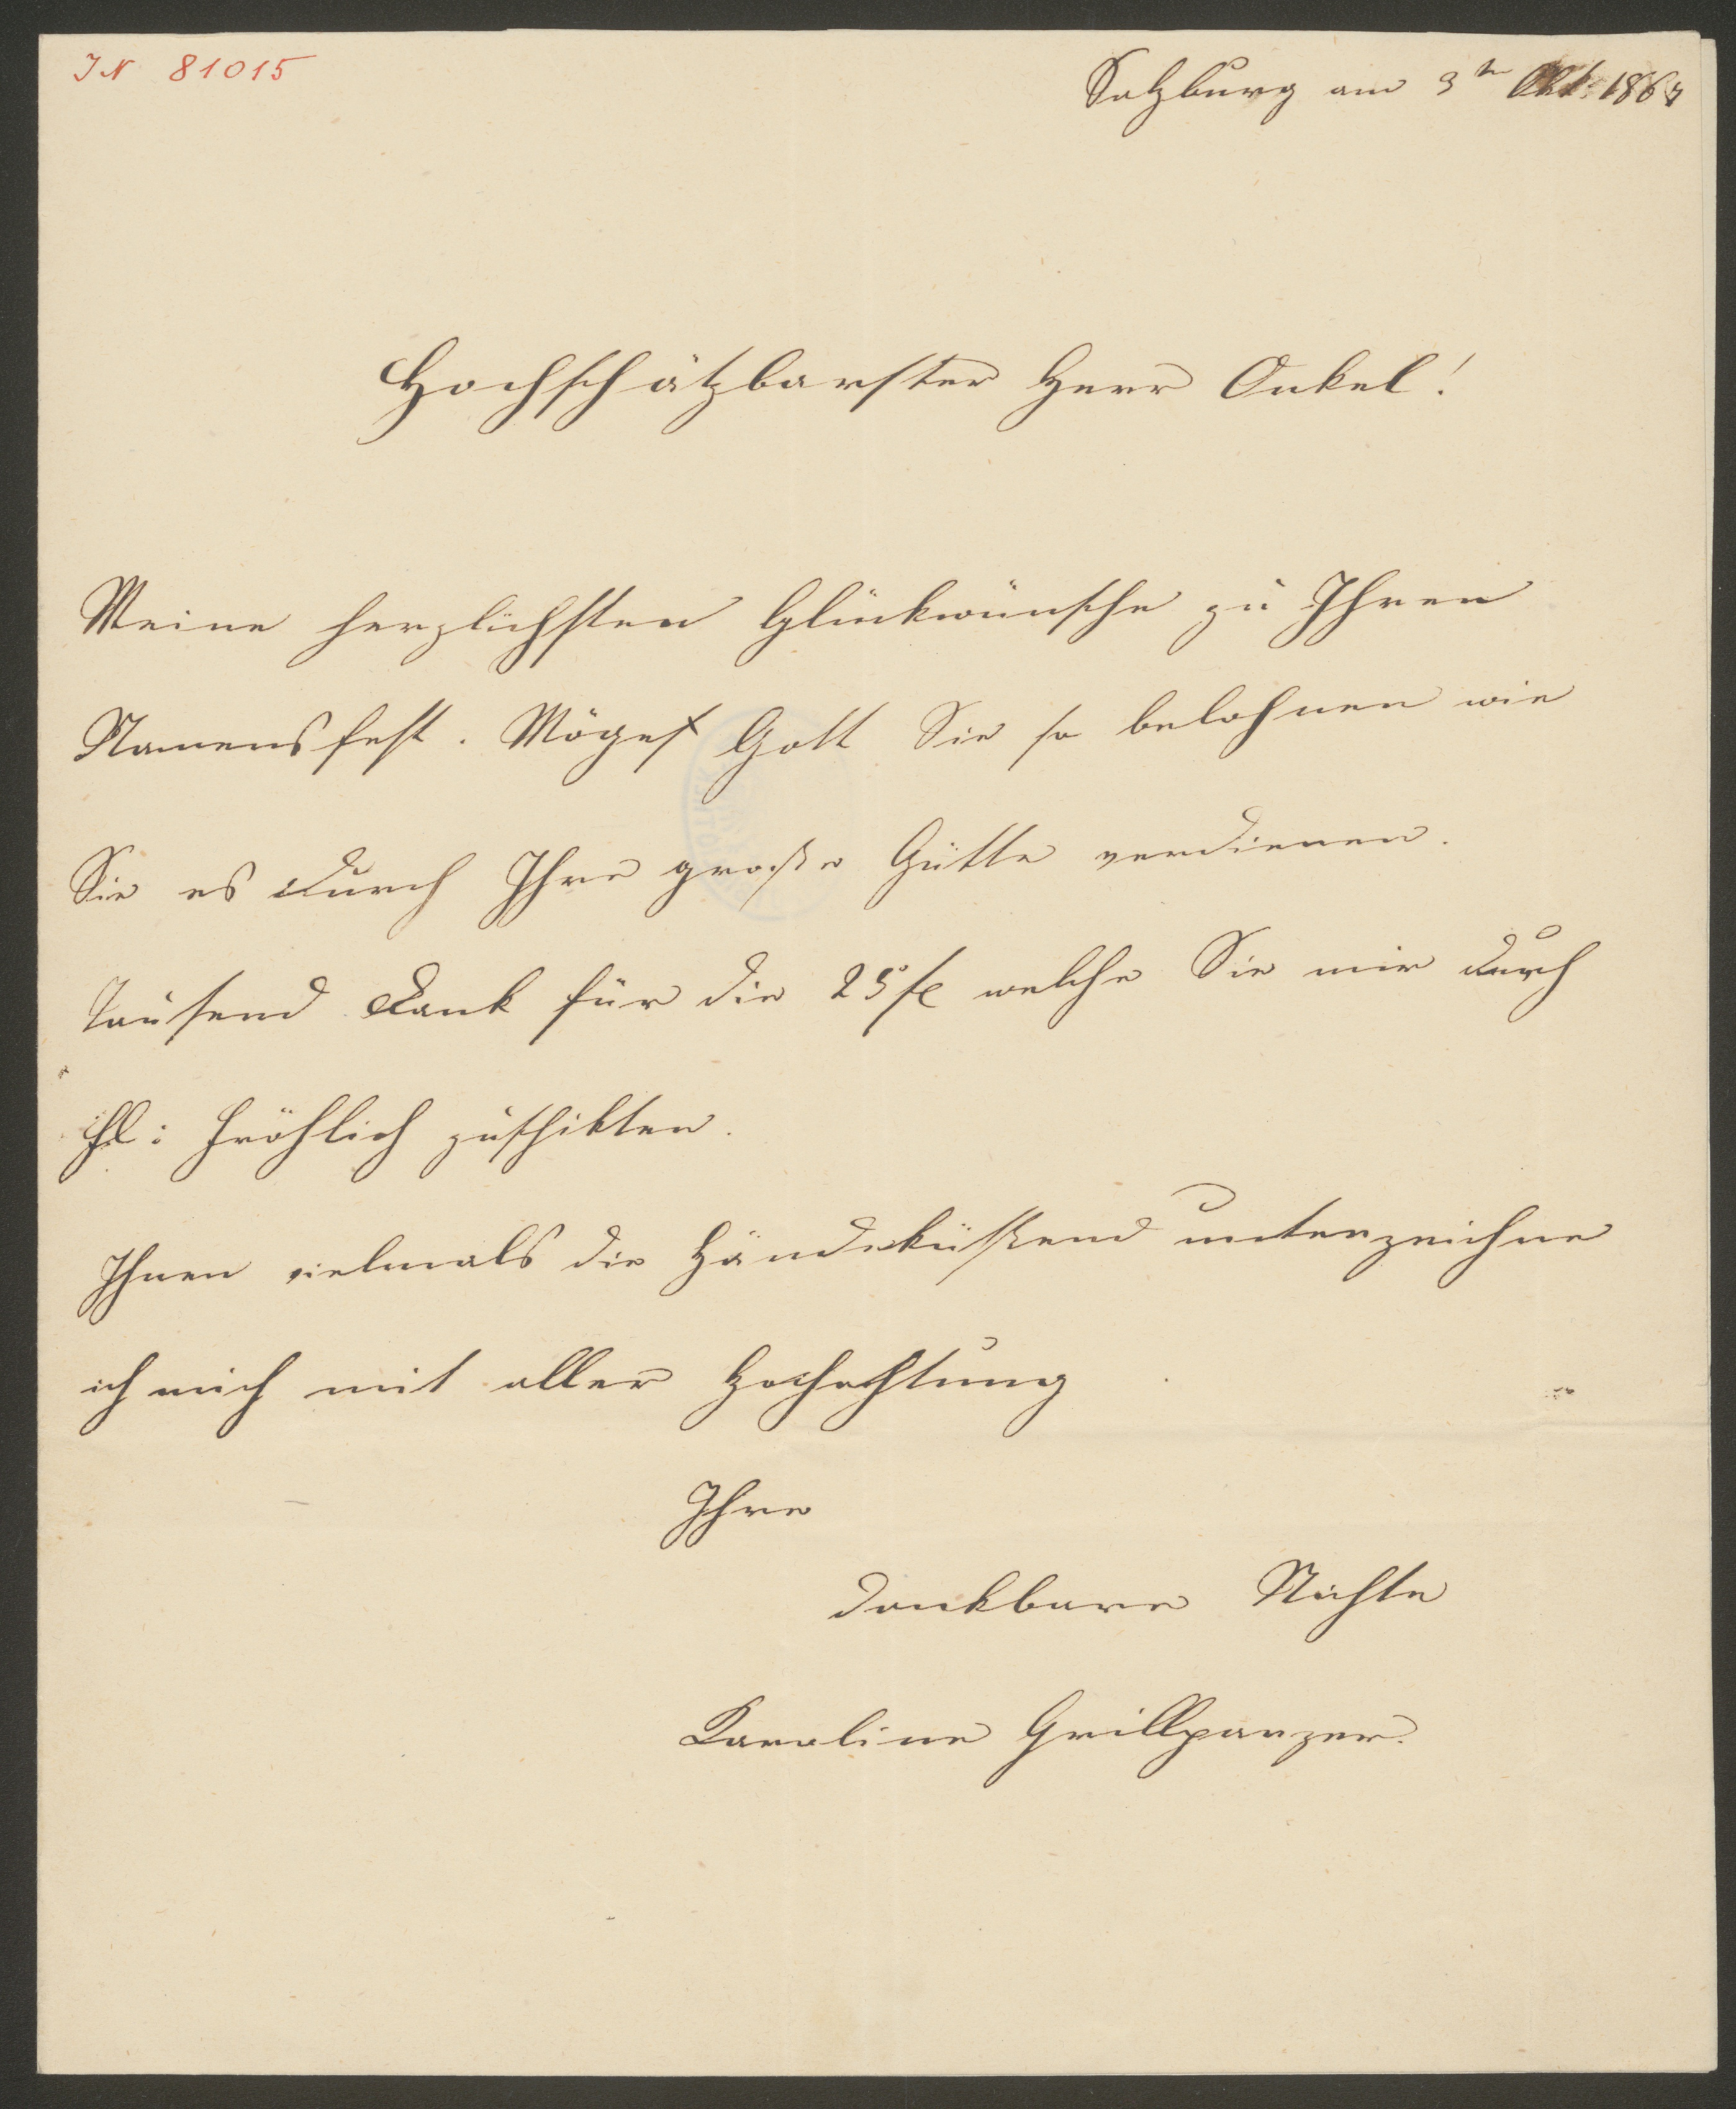 IN 81015
Salzburg am 3ten Okt: 1867
Hochschätzbarster Herr Onkel!
Meine herzlichsten Glückwünsche zu Ihren
Namensfest. Möge Gott Sie so belohnen wie
Sie es durch Ihre große Gütte verdienen.
Tausend Dank für die 25 fl welche Sie mir durch
Frl: Fröhlich zuschikten.
Ihnen vielmals die Händeküßend unterzeichne
ich mich mit aller Hochachtung
Ihre
dankbare Nichte
Karoline Grillparzer.